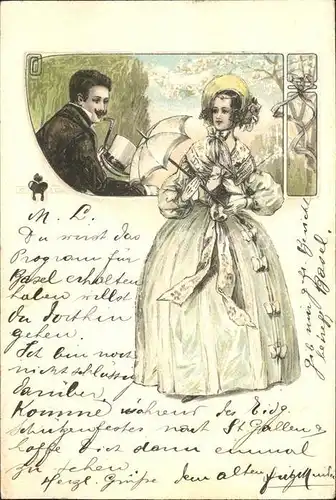 M. L.
Du wirst das
Program für
Basel erhalten
haben willst
du dorthin
gehen.
Ich bin noch
nicht schlüssig
darüber.
Komme während des Eidg.
Schützenfestes nach St Gallen &
hoffe Dich dann einmal
zu sehen.
Herzl. Grüße dem alten
Gib mir d. f. Bericht
Basel.